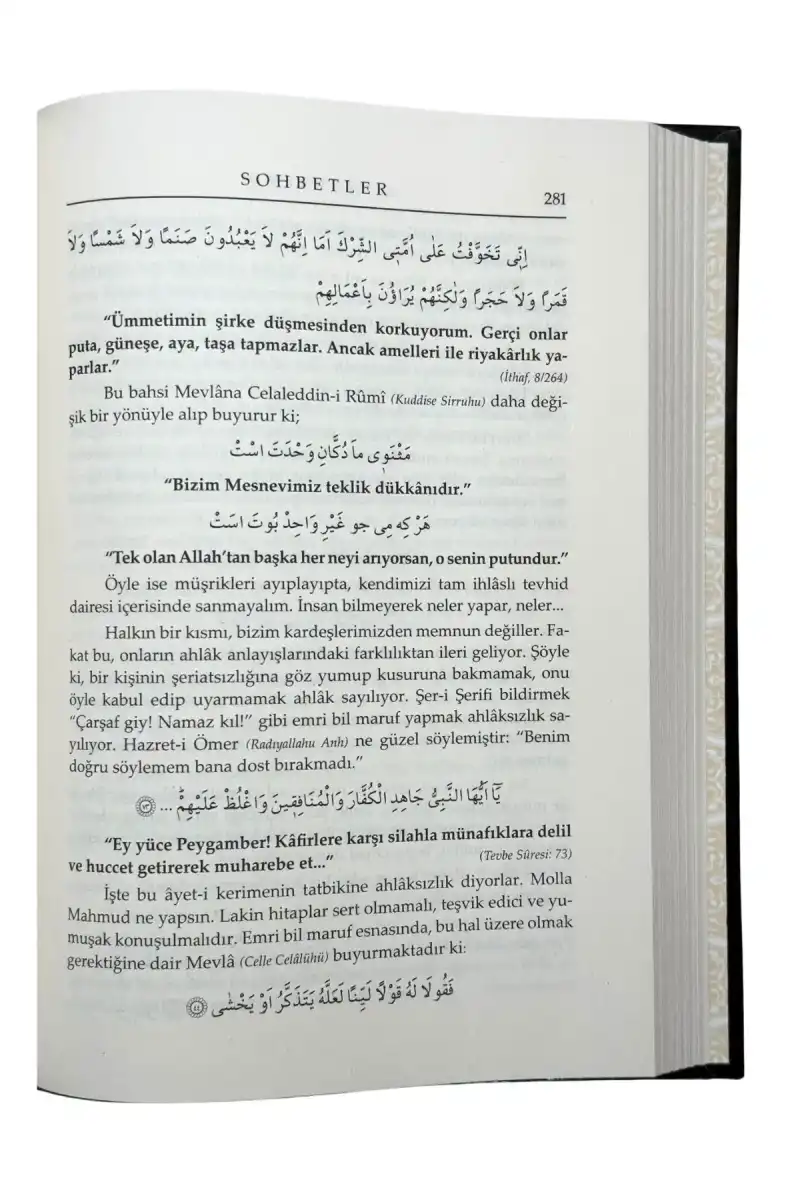 SOHBETLER
281
اِنّ۪ي تَخَوَّفْتُ عَلٰى اُمَّت۪ي الشِّرْكَ اَمَا اِنَّهُمْ لاَ يَعْبُدُونَ صَنَمًا وَلاَ شَمْسًا وَلاَ
قَمَرًا وَلاَ حَجَرًا وَلٰكِنَّهُمْ يُرَاؤُنَ بِاَعْمَالِهِمْ
“Ümmetimin şirke düşmesinden korkuyorum. Gerçi onlar
puta, güneşe, aya, taşa tapmazlar. Ancak amelleri ile riyakârlık ya-
parlar.”
(İthaf, 8/264)
Bu bahsi Mevlâna Celaleddin-i Rûmî (Kuddise Sirruhu) daha deği-
şik bir yönüyle alıp buyurur ki;
مَثْنَو۪ى مَا دُكَّانِ وَحْدَتَ اسْتْ
“Bizim Mesnevimiz teklik dükkânıdır.”
هَرْ كِه مِى جو غَيْرِ وَاحِدْ بُوتَ اسَتْ
“Tek olan Allah’tan başka her neyi arıyorsan, o senin putundur.”
Öyle ise müşrikleri ayıplayıpta, kendimizi tam ihlâslı tevhid
dairesi içerisinde sanmayalım. İnsan bilmeyerek neler yapar, neler...
Halkın bir kısmı, bizim kardeşlerimizden memnun değiller. Fa-
kat bu, onların ahlâk anlayışlarındaki farklılıktan ileri geliyor. Şöyle
ki, bir kişinin şeriatsızlığına göz yumup kusuruna bakmamak, onu
öyle kabul edip uyarmamak ahlâk sayılıyor. Şer-i Şerifi bildirmek
“Çarşaf giy! Namaz kıl!” gibi emri bil maruf yapmak ahlâksızlık sa-
yılıyor. Hazret-i Ömer (Radıyallahu Anh) ne güzel söylemiştir: “Benim
doğru söylemem bana dost bırakmadı.”
يَٓا اَيُّهَا النَّبِيُّ جَاهِدِ الْكُفَّارَ وَالْمُنَافِق۪ينَ وَاغْلُظْ عَلَيْهِمْۜ ... ﴿٧٣﴾
“Ey yüce Peygamber! Kâfirlere karşı silahla münafıklara delil
ve huccet getirerek muharebe et...”
(Tevbe Sûresi: 73)
İşte bu âyet-i kerimenin tatbikine ahlâksızlık diyorlar. Molla
Mahmud ne yapsın. Lakin hitaplar sert olmamalı, teşvik edici ve yu-
muşak konuşulmalıdır. Emri bil maruf esnasında, bu hal üzere olmak
gerektiğine dair Mevlâ (Celle Celâlühü) buyurmaktadır ki:
فَقُولَا لَهُ قَوْلًا لَيِّنًا لَعَلَّهُ يَتَذَكَّرُ اَوْ يَخْشٰى ﴿٤٤﴾